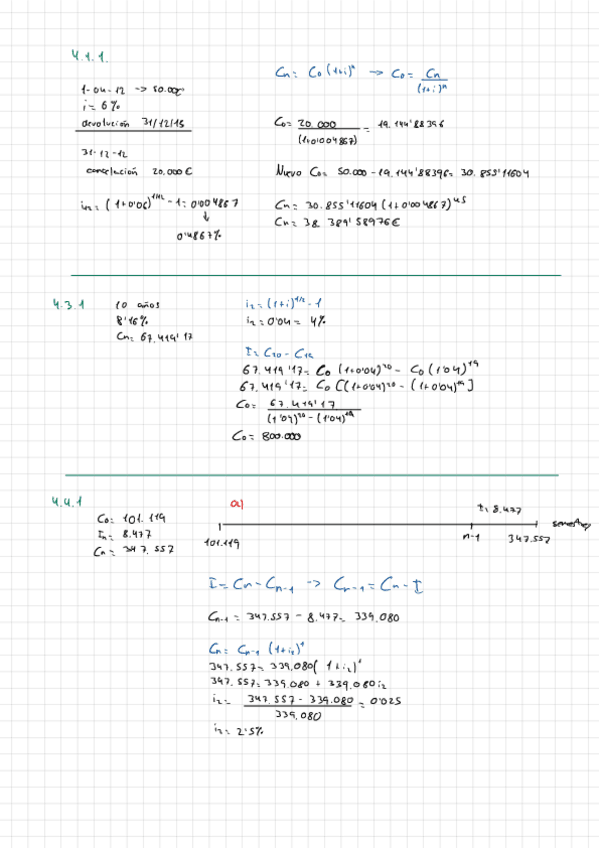 4.1.1.
1-04-12 -> 50.000
i = 6%
devolución 31/12/15
31-12-12
cancelación 20.000€
i₁₂ = (1+0'06)^1/12 - 1 = 0'004867
↓
0'4867%
Cn = Co (1+i)^n -> Co = Cn / (1+i)^n
Co = 20.000 / (1+0'004867) = 19.144'88396
Nuevo Co = 50.000 - 19.144'88396 = 30.855'11604
Cn = 30.855'11604 (1+0'004867)^45
Cn = 38.389'58976€
4.3.1
10 años
8'16%
Cn = 67.419'17
i₂ = (1+i)^1/2 - 1
i₂ = 0'04 = 4%
I = C20 - C19
67.419'17 = Co (1+0'04)^20 - Co (1'04)^19
67.419'17 = Co [(1+0'04)^20 - (1+0'04)^19]
Co = 67.419'17 / (1'04)^20 - (1'04)^19
Co = 800.000
4.4.1
Co = 101.119
In = 8.477
Cn = 347.557
a)
I = 8.477
101.119
n-1
347.557
I = Cn - Cn-1 -> Cn-1 = Cn - I
Cn-1 = 347.557 - 8.477 = 339.080
Cn = Cn-1 (1+i₂)^1
347.557 = 339.080 (1+i₂)^1
347.557 = 339.080 + 339.080 i₂
i₂ = 347.557 - 339.080 / 339.080 = 0'025
i₂ = 2'5%